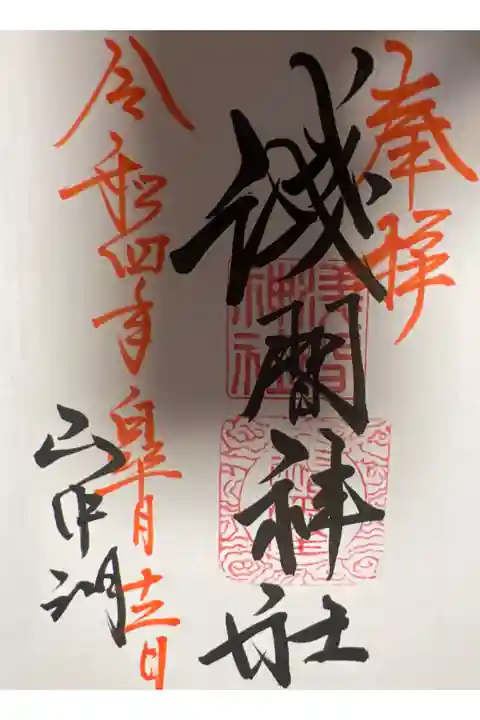 奉拝
浅間神社
浅間
神社
令和四年皐月十三日
山中湖